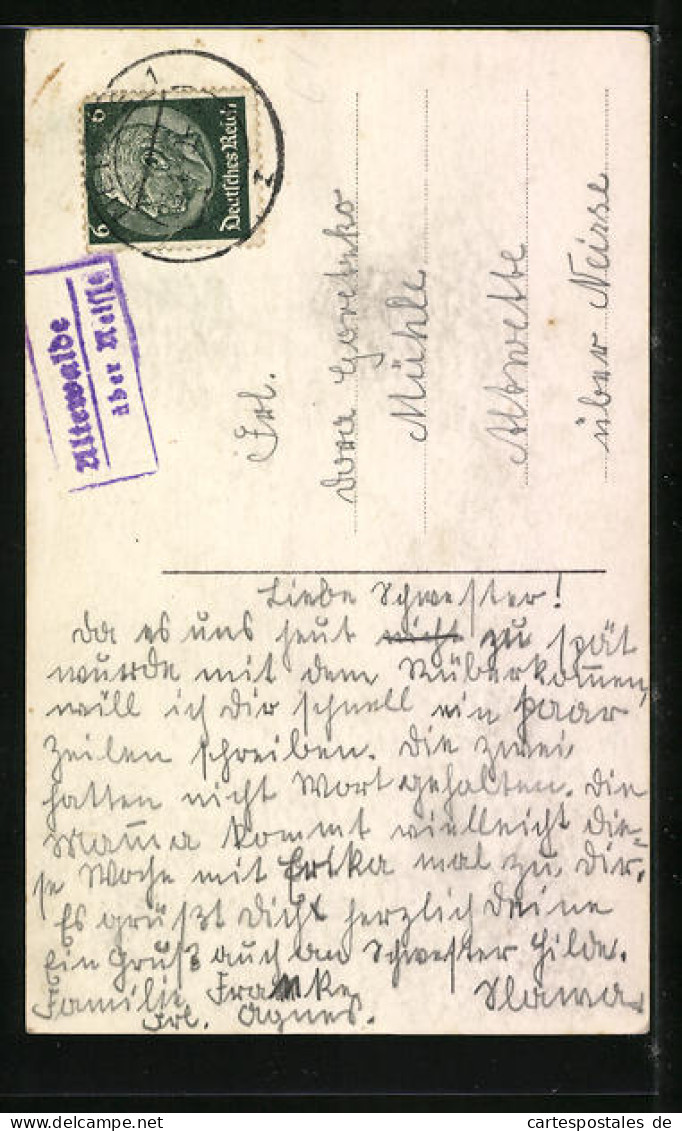 6 6
Deutsches Reich
Altewalde
über Neisse
Frl.
Dora Goretzko
Mühle
Altwette
über Neisse
Liebe Schwester!
Da es uns heut nicht zu spät
wurde mit dem Rüberkommen,
will ich dir schnell ein paar
Zeilen schreiben. Die zwei
hatten nicht Wort gehalten. Die
Mama kommt vielleicht die-
se Woche mit Erika mal zu dir.
Es grüßt dich herzlich deine
Ein Gruß auch an Schwester Hilde.
Familie Franke Slawa
Frl. Agnes.
cartespostales.de